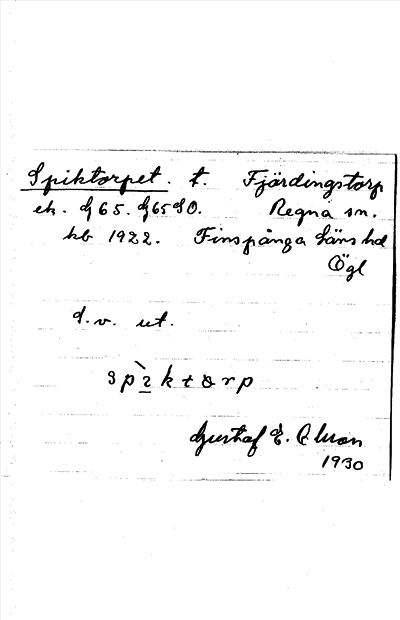 Spiktorpet. t. Fjärdingstorp
ek. dj 65. dj 65 SO. Regna sn.
kb 1922. Finspånga läns hd
Ögl
d. v. ut.
Gustaf E.
1930